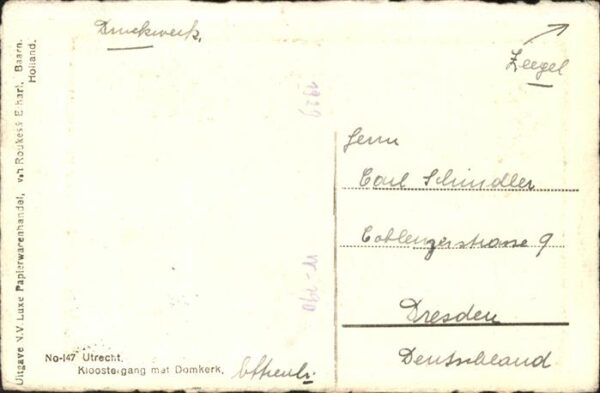 Druckwerk.
Zeegel
1929
Herrn
Carl Schindler
Coblenzerstrasse 9
Dresden
Deutschland
No-147 Utrecht.
Kloostergang met Domkerk.
Uitgave N.V. Luxe Papierwarenhandel, v.h. Roukes & Erhart, Baarn,
Holland.